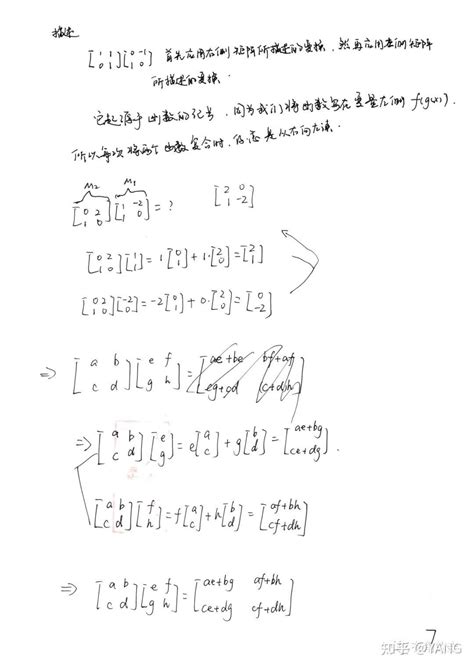 描述
[1 1; 1 0][0 -1; 1 0] 首先应用右侧矩阵所描述的变换,然后再应用左侧矩阵
所描述的变换.
它起源于函数的记号,因为我们将函数写在变量左侧 f(g(x)).
所以每次将两个函数复合时,你总是从右向左读.
M2 M1
[0 2; 1 0][1 -2; 1 0] = ? [2 0; 1 -2]
[0 2; 1 0][1; 1] = 1·[0; 1] + 1·[2; 0] = [2; 1]
[0 2; 1 0][-2; 0] = -2[0; 1] + 0·[2; 0] = [0; -2]
⇒ [a b; c d][e f; g h] = [ae+be bf+af; eg+cd c+dh]
⇒ [a b; c d][e; g] = e[a; c] + g[b; d] = [ae+bg; ce+dg].
[a b; c d][f; h] = f[a; c] + h[b; d] = [af+bh; cf+dh]
⇒ [a b; c d][e f; g h] = [ae+bg af+bh; ce+dg cf+dh]
7
知乎 @YANG